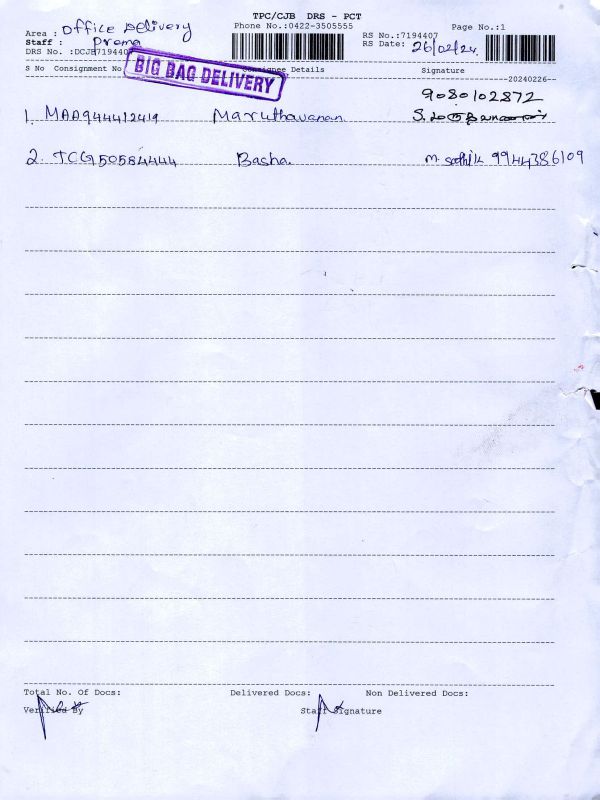 TPC/CJB DRS - PCT
Area : Office Delivery Phone No.:0422-3505555 Page No.:1
Staff : Prema RS No.:7194407
DRS No. :DCJB7194407 RS Date: 26/02/24
BIG BAG DELIVERY
S No Consignment No Consignee Details Signature
20240226
9080102872
1. MAA944412419 Maruthavanan
2. TCG50584444 Basha m. sathik 9944386109
Total No. Of Docs: Delivered Docs: Non Delivered Docs:
Verified By Staff Signature